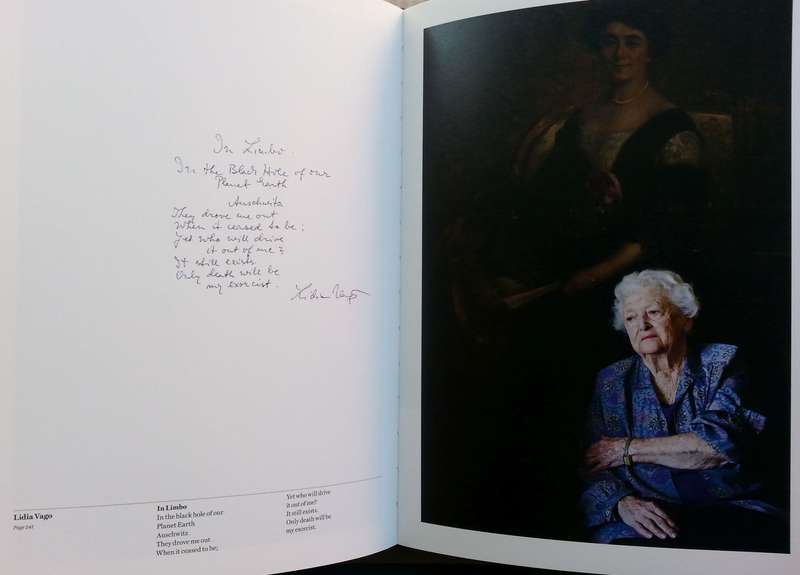 In Limbo.
In the Black Hole of our
Planet Earth
Auschwitz
They drove me out
When it ceased to be;
Yet who will drive
it out of me?
It still exists.
Only death will be
my exorcist.
Lidia Vago
Lidia Vago
Page 241
In Limbo
In the black hole of our
Planet Earth
Auschwitz
They drove me out
When it ceased to be;
Yet who will drive
it out of me?
It still exists.
Only death will be
my exorcist.